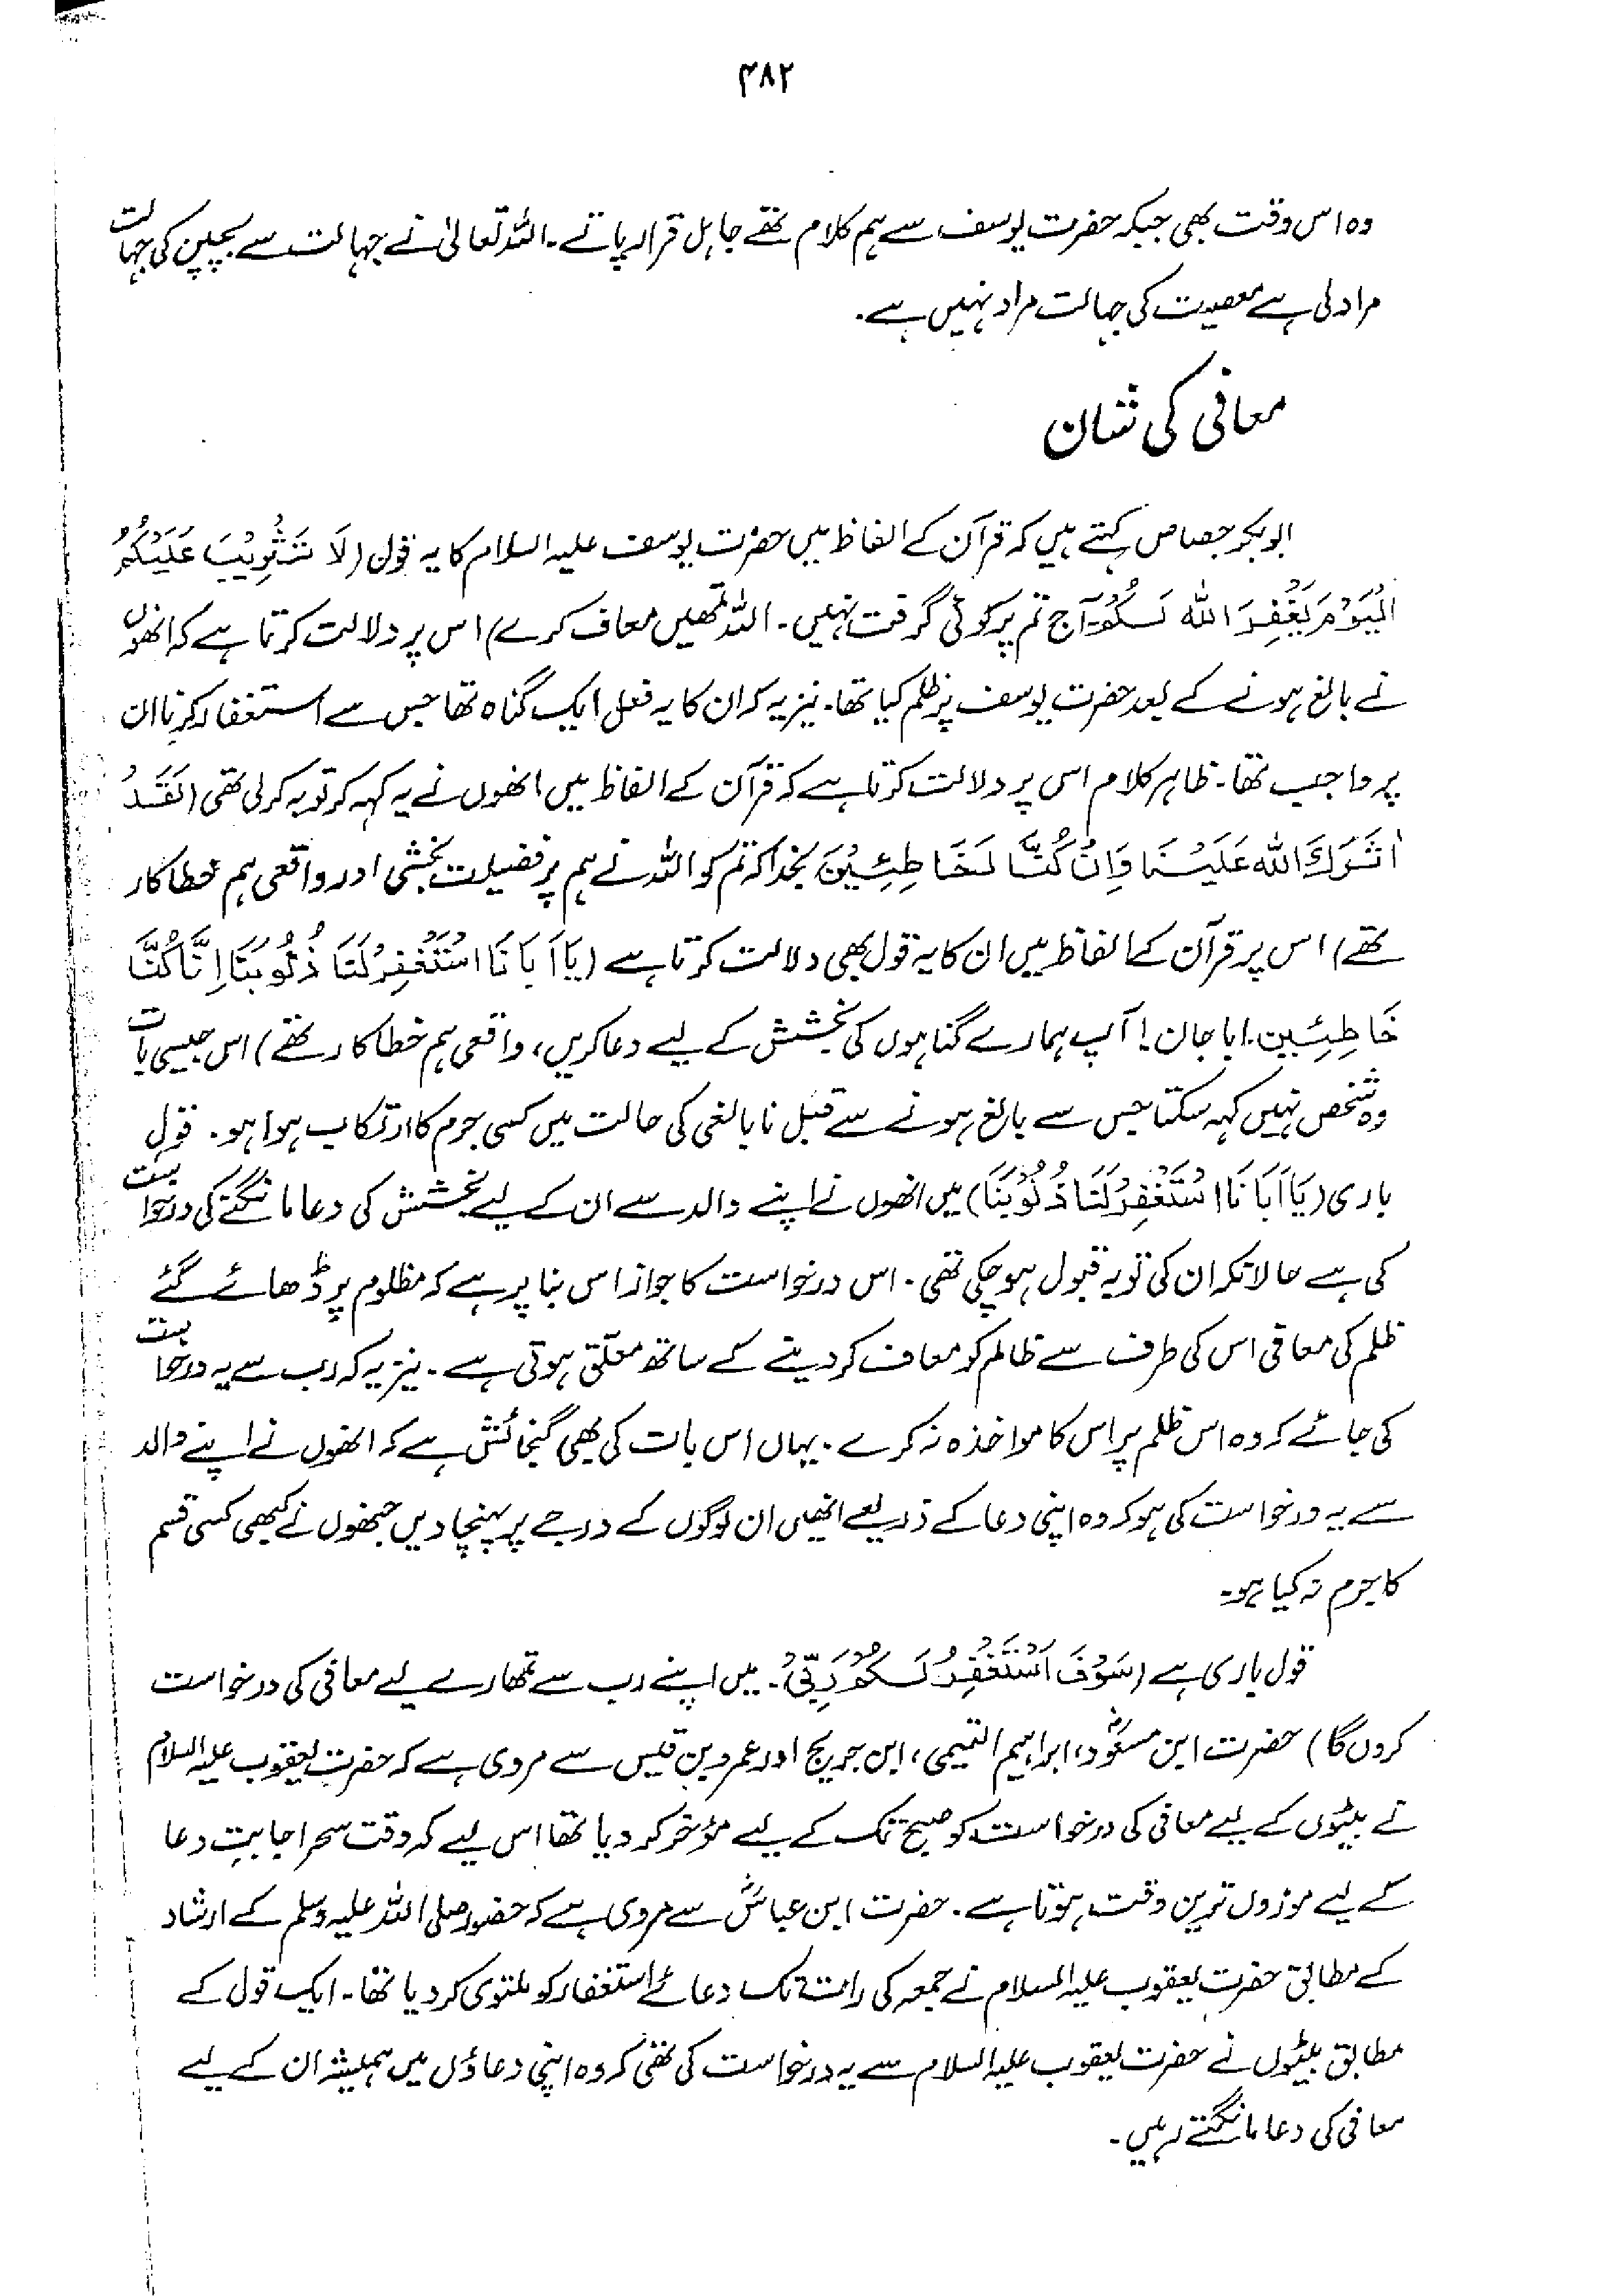 ۴۸۲
وہ اس وقت بھی جبکہ حضرت یوسف سے ہم کلام تھے جاہل قرار پاتے۔ اللہ تعالیٰ نے جہالت سے بچپن کی جہالت
مراد لی ہے معصیت کی جہالت مراد نہیں ہے۔
معافی کی شان
ابوبکر جصاص کہتے ہیں کہ قرآن کے الفاظ میں حضرت یوسف علیہ السلام کا یہ قول (لَا تَثْرِیْبَ عَلَیْکُمُ
الْیَوْمَ یَغْفِرَ اللہ لَکُمْ آج تم پر کوئی گرفت نہیں۔ اللہ تمھیں معاف کرے) اس پر دلالت کرتا ہے کہ انھوں
نے بالغ ہونے کے بعد حضرت یوسف پر ظلم کیا تھا۔ نیز یہ کہ ان کا یہ فعل ایک گناہ تھا جس سے استغفار کرنا ان
پر واجب تھا۔ ظاہر کلام اس پر دلالت کرتا ہے کہ قرآن کے الفاظ میں انھوں نے یہ کہہ کر توبہ کر لی تھی (لَقَدْ
اٰثَرَکَ اللہ عَلَیْنَا وَاِنْ کُنَّا لَخَاطِئِیْنَ بخدا کہ تم کو اللہ نے ہم پر فضیلت بخشی اور واقعی ہم خطا کار
تھے) اس پر قرآن کے الفاظ میں ان کا یہ قول بھی دلالت کرتا ہے (یَا اَبَانَا اسْتَغْفِرْ لَنَا ذُنُوبَنَا اِنَّا کُنَّا
خَاطِئِیْن۔ ابا جان! آپ ہمارے گناہوں کی بخشش کے لیے دعا کریں، واقعی ہم خطا کار تھے) اس جیسی بات
وہ شخص نہیں کہہ سکتا جس سے بالغ ہونے سے قبل نابالغی کی حالت میں کسی جرم کا ارتکاب ہوا ہو۔ قول
باری (یَا اَبَانَا اسْتَغْفِرْ لَنَا ذُنُوْبَنَا) میں انھوں نے اپنے والد سے ان کے لیے بخشش کی دعا مانگنے کی درخواست
کی ہے حالانکہ ان کی توبہ قبول ہو چکی تھی۔ اس درخواست کا جواز اس بنا پر ہے کہ مظلوم پر ڈھائے گئے
ظلم کی معافی اس کی طرف سے ظالم کو معاف کر دینے کے ساتھ معلّق ہوتی ہے۔ نیز یہ کہ رب سے یہ درخواست
کی جائے کہ وہ اس ظلم پر اس کا مواخذہ نہ کرے۔ یہاں اس بات کی بھی گنجائش ہے کہ انھوں نے اپنے والد
سے یہ درخواست کی ہو کہ وہ اپنی دعا کے ذریعے انھیں ان لوگوں کے درجے پر پہنچا دیں جنھوں نے کبھی کسی قسم
کا جرم نہ کیا ہو۔
قول باری ہے (سَوْفَ اَسْتَغْفِرُ لَکُمْ رَبِّیْ۔ میں اپنے رب سے تمھارے لیے معافی کی درخواست
کروں گا) حضرت ابن مسعودؓ، ابراہیم التیمی، ابن جریج اور عمرو بن قیس سے مروی ہے کہ حضرت یعقوب علیہ السلام
نے بیٹوں کے لیے معافی کی درخواست کو صبح تک کے لیے مؤخر کر دیا تھا اس لیے کہ وقت سحر اجابتِ دعا
کے لیے موزوں ترین وقت ہوتا ہے۔ حضرت ابن عباسؓ سے مروی ہے کہ حضور صلی اللہ علیہ وسلم کے ارشاد
کے مطابق حضرت یعقوب علیہ السلام نے جمعہ کی رات تک دعائے استغفار کو ملتوی کر دیا تھا۔ ایک قول کے
مطابق بیٹوں نے حضرت یعقوب علیہ السلام سے یہ درخواست کی تھی کہ وہ اپنی دعاؤں میں ہمیشہ ان کے لیے
معافی کی دعا مانگتے رہیں۔